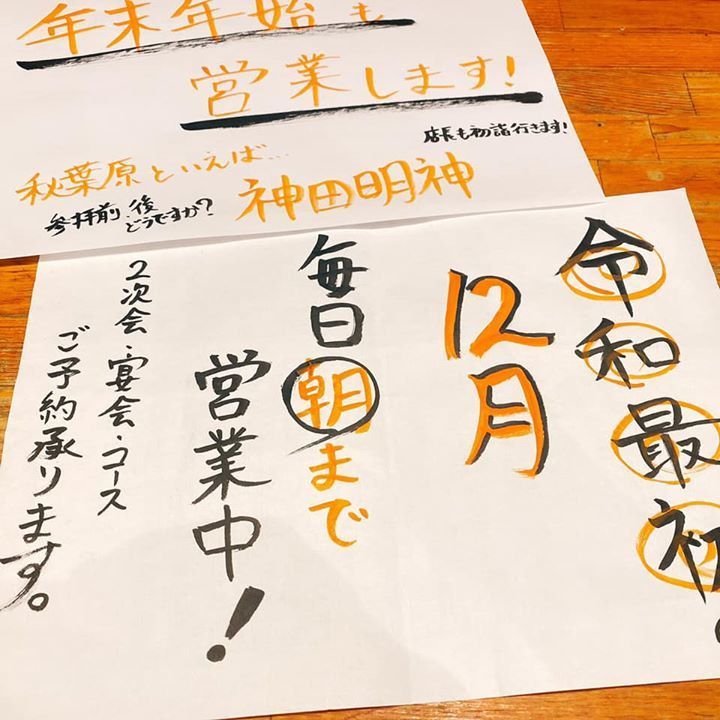 年末年始も
営業します!
店長も初詣行きます!
秋葉原といえば…
神田明神
参拝前、後
どうですか?
令和最初!
12月
毎日朝まで
営業中!
2次会・宴会・コース
ご予約承ります。